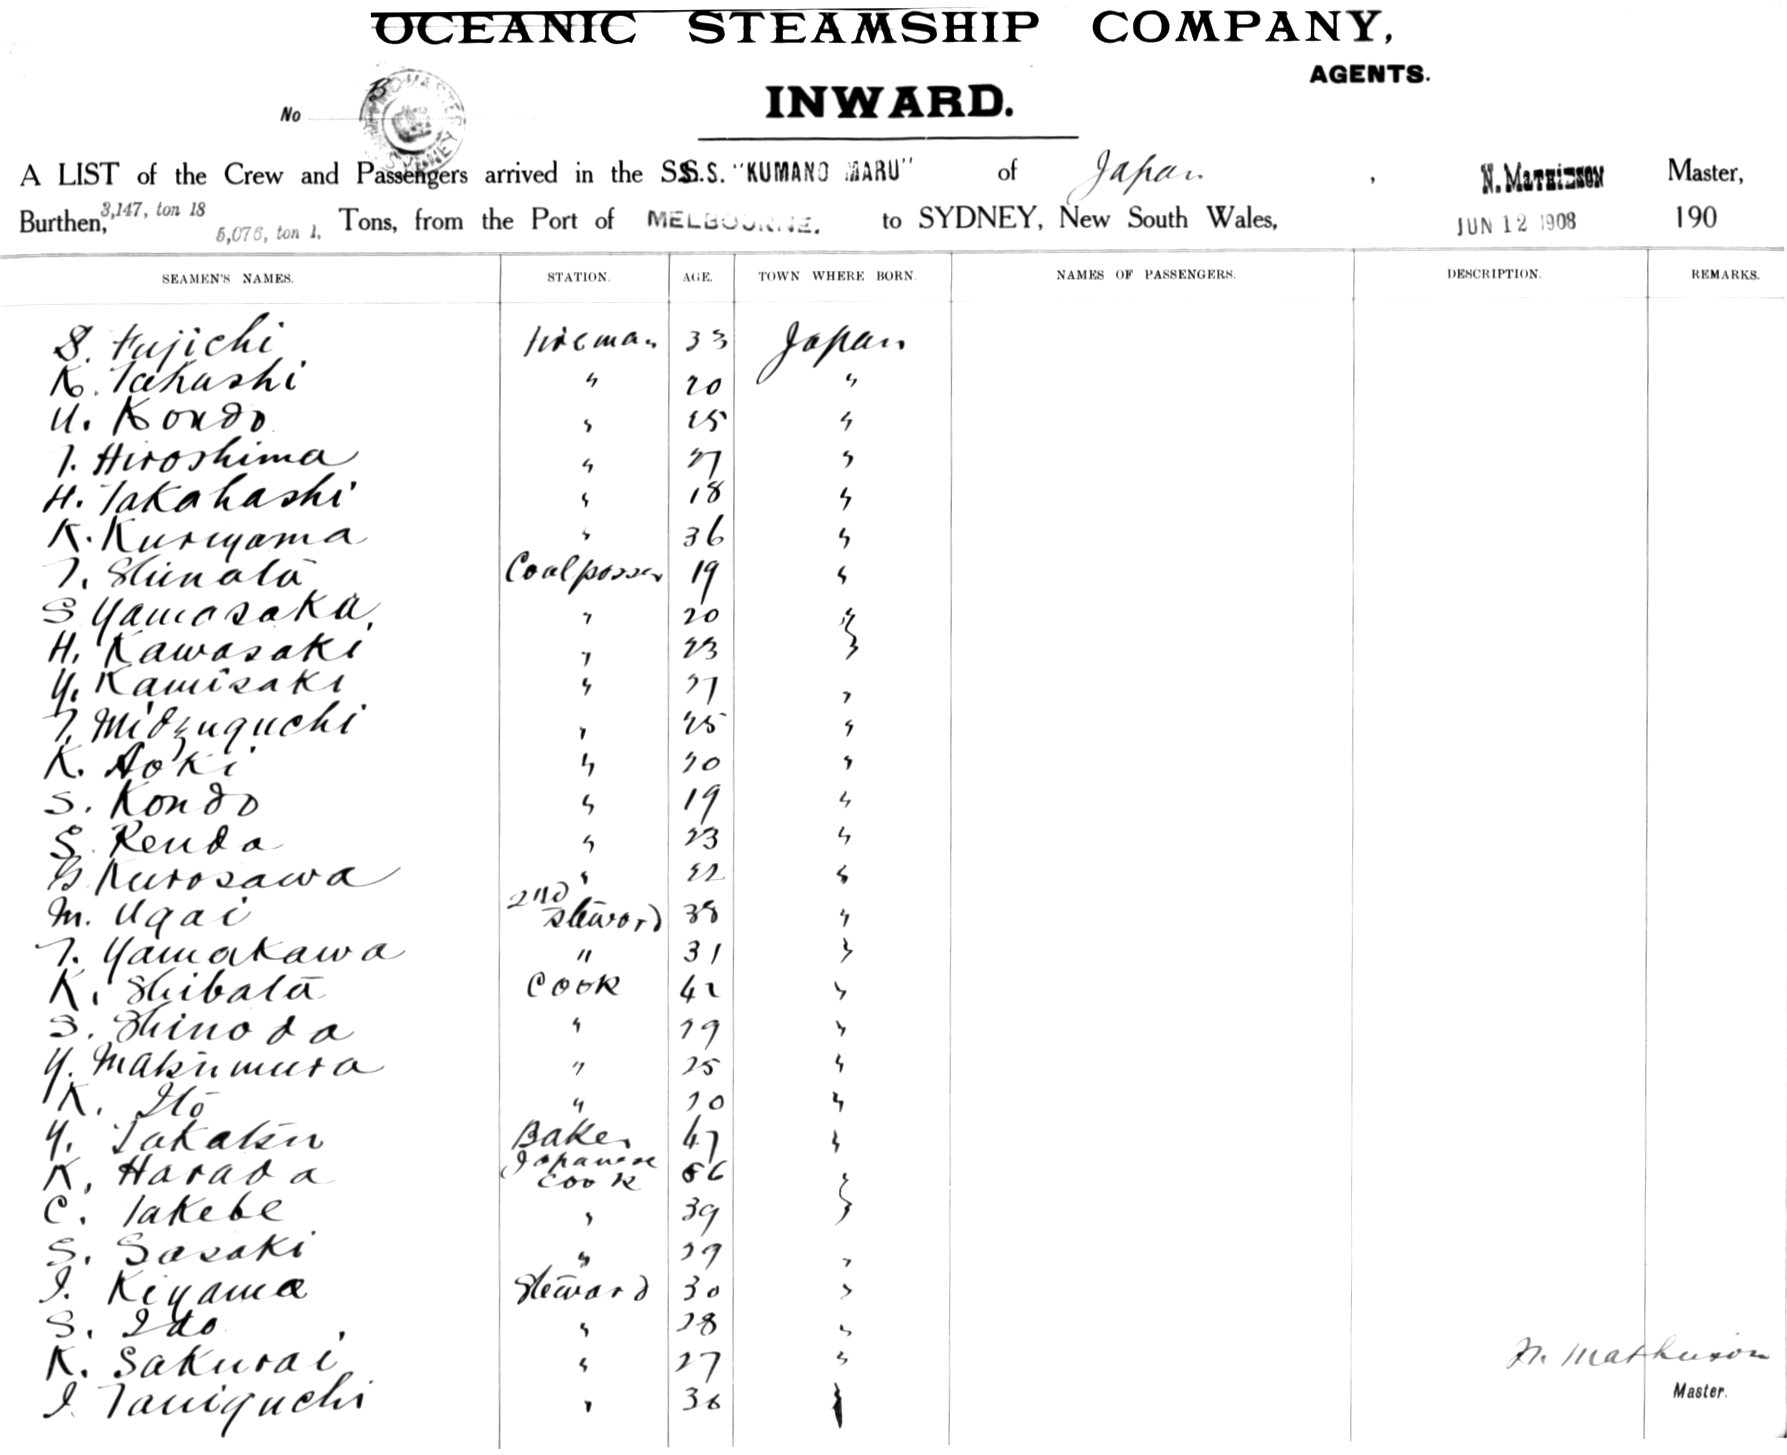 OCEANIC STEAMSHIP COMPANY,
AGENTS.
INWARD.
No
A LIST of the Crew and Passengers arrived in the S.S. "KUMANO MARU" of Japan, N. MATHIESON Master,
Burthen, 3,147, ton 18 5,076, ton 1. Tons, from the Port of MELBOURNE. to SYDNEY, New South Wales, JUN 12 1908 190
SEAMEN'S NAMES. STATION. AGE. TOWN WHERE BORN. NAMES OF PASSENGERS. DESCRIPTION. REMARKS.
S. Fujichi Fireman 33 Japan
K. Takashi " 20 "
U. Kondo " 25 "
T. Hiroshima " 27 "
H. Takahashi " 18 "
K. Kuriyama " 36 "
T. Shinata Coalpasser 19 "
S Yamasaka, " 20 "
H. Kawasaki " 23 "
Y. Kamisaki " 27 "
T. Midzuguchi " 25 "
K. Aoki " 20 "
S. Kondo " 19 "
S. Renda " 23 "
G. Kurosawa " 22 "
M. Ugai 2nd Steward 38 "
T. Yamakawa " 31 "
K. Shibata Cook 42 "
S. Shinoda " 29 "
Y. Matsumura " 25 "
K. Ito " 20 "
Y. Takatsu Baker 47 "
K. Harada Japanese Cook 56 "
C. Takebe " 39 "
S. Sasaki " 29 "
I. Kiyama Steward 30 "
S. Ido " 28 "
K. Sakurai " 27 "
I. Taniguchi " 36 "
N. Mathieson
Master.